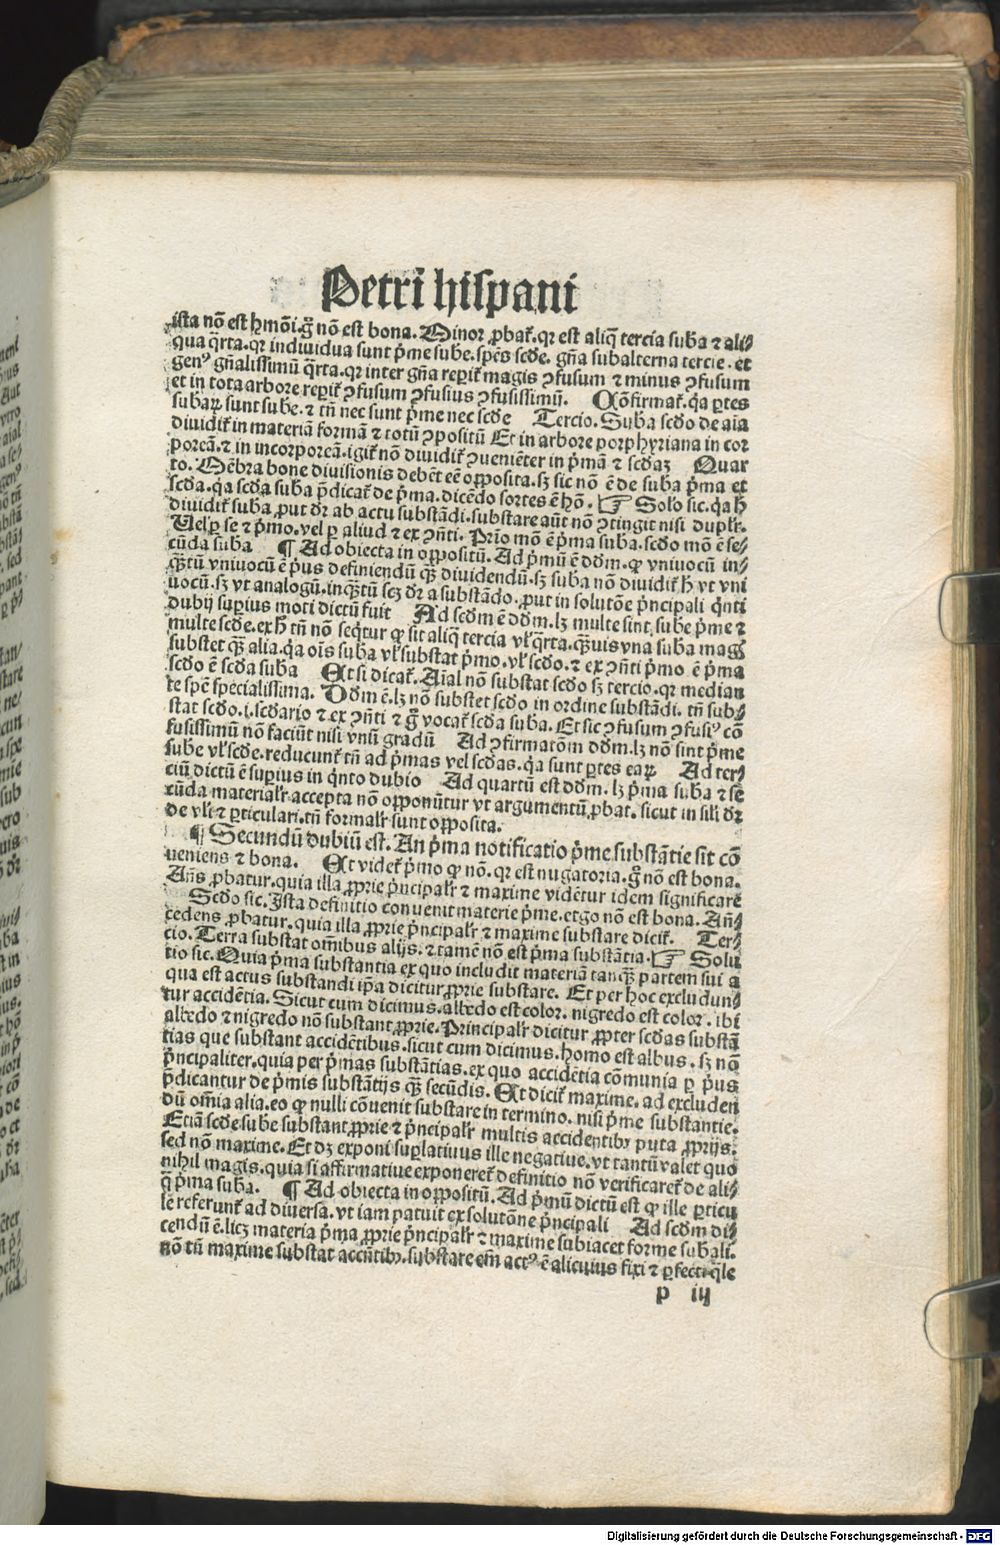 Petri hispani
ista nō est hmōi. g̊ nō est bona. Minor ꝓbat᷑. qꝛ est aliq̄ tercia suba ⁊ ali⸗
qua q̄rta. qꝛ indiuidua sunt p̄me sube. sp̄es scd̄e. gn̄a subalterna tercie. et
genꝰ gn̄alissimū q̄rta. qꝛ inter gn̄a reꝑit᷑ magis ꝯfusum ⁊ minus ꝯfusum
et in tota arbore reꝑit᷑ ꝯfusum ꝯfusius ꝯfusissimū. Cōfirmat᷑. q̇a ꝑtes
subaꝝ sunt sube. ⁊ tn̄ nec sunt p̄me nec scd̄e Tercio. Suba scd̄o de aīa
diuidit᷑ in materiā formā ⁊ totū ꝯpositū Et in arbore porphyriana in cor
poreā. ⁊ in incorporeā. igit᷑ nō diuidit᷑ ꝯueniēter in p̄mā ⁊ scd̄aꝫ Quar
to. Mēbra bone diuisionis debēt eē opposita. sꝫ sic nō ē de suba p̄ma et
scd̄a. q̇a scd̄a suba p̄dicat᷑ de p̄ma. dicēdo sortes ē hō. ☞ Solo sic. q̇a h̄
diuidit᷑ suba, put dꝛ ab actu substādi. substare aūt nō ꝯtingit nisi duplr̄.
Uel ꝑ se ⁊ p̄mo. vel ꝑ aliud ⁊ ex ꝯn̄ti. Prīo mō ē p̄ma suba. scd̄o mō ē se⸗
cūda suba ¶ Ad obiecta in oppositū. Ad p̄mū ē dd̄m. ꝙ vniuocū in⸗
q̄ꝫtū vniuocū ē p̄us definiendū q̄ꝫ diuidendū. sꝫ suba nō diuidit᷑ h̄ vt vni
uocū. sꝫ vt analogū. inq̄ꝫtū scꝫ dꝛ a substādo. ꝓut in solutōe p̄ncipali q̇nti
dubij suꝑius moti dictū fuit Ad scd̄m ē dd̄m. lꝫ multe sint sube p̄me ⁊
multe scd̄e. ex h̄ tn̄ nō seq̄tur ꝙ sit aliq̄ tercia vl̓ q̄rta. q̄ꝫuis vna suba mag̓
substet q̄ꝫ alia. q̇a oīs suba vl̓ substat p̄mo. vl̓ scd̄o. ⁊ ex ꝯn̄ti p̄mo ē p̄ma
scd̄o ē scd̄a suba Et si dicat᷑. Aīal nō substat scd̄o sꝫ tercio. qꝛ median
te sp̄e specialissima. Dd̄m ē. lꝫ nō substet scd̄o in ordine substādi. tn̄ sub⸗
stat scd̄o. i. scd̄ario ⁊ ex ꝯn̄ti ⁊ g̊ vocat᷑ scd̄a suba. Et sic ꝯfusum ꝯfusiꝰ cō
fusissimū nō faciūt nisi vnū gradū Ad ꝯfirmatōm dd̄m. lꝫ nō sint p̄me
sube vl̓ scd̄e. reducunt᷑ tn̄ ad p̄mas vel scd̄as. q̇a sunt ꝑtes eaꝝ Ad ter⸗
ciū dictū ē suꝑius in q̇nto dubio Ad quartū est dd̄m. lꝫ p̄ma suba ⁊ se
cūda materialr̄ accepta nō opponūtur vt argumentū ꝓbat. sicut in sil̄i dꝛ
de vl̓i ⁊ ꝑticulari. tn̄ formalr̄ sunt opposita.
¶ Secundū dubiū est. An p̄ma notificatio p̄me substātie sit cō
ueniens ⁊ bona. Et videt᷑ p̄mo ꝙ nō. qꝛ est nugatoria. g̊ nō est bona.
Añs ꝓbatur. quia illa ꝓprie p̄ncipalr̄ ⁊ maxime vidētur idem significare
Scd̄o sic. Ista definitio conuenit materie p̄me. ergo nō est bona. Añ⸗
cedens ꝓbatur. quia illa ꝓprie p̄ncipalr̄ ⁊ maxime substare dicit᷑. Ter⸗
cio. Terra substat om̄ibus alijs. ⁊ tamē nō est p̄ma substātia. ☞ Solu
tio sic. Quia p̄ma substantia ex quo includit materiā tanq̄ꝫ partem sui a
qua est actus substandi ip̄a dicitur ꝓprie substare. Et per hoc excludun⸗
tur accidētia. Sicut cum dicimus. albedo est color. nigredo est color. ibi
albedo ⁊ nigredo nō substant ꝓprie. Principalr̄ dicitur ꝓpter scd̄as substā
tias que substant accidētibus. sicut cum dicimus. homo est albus. sꝫ nō
p̄ncipaliter. quia per p̄mas substātias. ex quo accidētia cōmunia ꝑ p̄us
p̄dicantur de p̄mis substātijs q̄ꝫ secūdis. Et dicit᷑ maxime. ad excluden
dū om̄ia alia. eo ꝙ nulli cōuenit substare in termino. nisi p̄me substantie.
Etiā scd̄e sube substant ꝓprie ⁊ p̄ncipalr̄ multis accidentibꝫ puta ꝓprijs.
sed nō maxime. Et dꝫ exponi suꝑlatiuus ille negatiue. vt tantū valet quo
nihil magis. quia si affirmatiue exponeret᷑ definitio nō verificaret᷑ de ali⸗
q̄ p̄ma suba. ¶ Ad obiecta in oppositū. Ad p̄mū dictū est ꝙ ille ꝑticu
le referunt᷑ ad diuersa. vt iam patuit ex solutōne p̄ncipali Ad scd̄m di⸗
cendū ē. licꝫ materia p̄ma ꝓprie p̄ncipalr̄ ⁊ maxime subiacet forme subali.
nō tn̄ maxime substat accn̄tibꝫ. substare em̄ actꝰ ē alicuius fixi ⁊ ꝑfecti q̄le
p iij
Digitalisierung gefördert durch die Deutsche Forschungsgemeinschaft - DFG